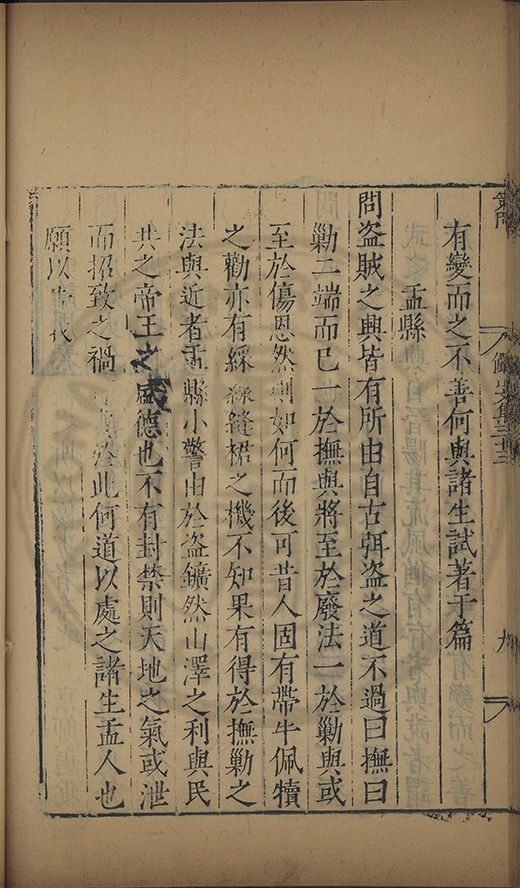 有變而之不善何與諸生試著于篇
盂縣
問盜賊之興皆有所由自古弭盜之道不過曰撫曰
勦二端而已一於撫與將至於廢法一於勦與或
至於傷恩然則如何而後可昔人固有帶牛佩犢
之勸亦有綵線縫裙之機不知果有得於撫勦之
法與近者盂縣小警由於盜鑛然山澤之利與民
共之帝王之盛德也不有封禁則天地之氣或泄
而招致之禍此何道以處之諸生盂人也
願以
九